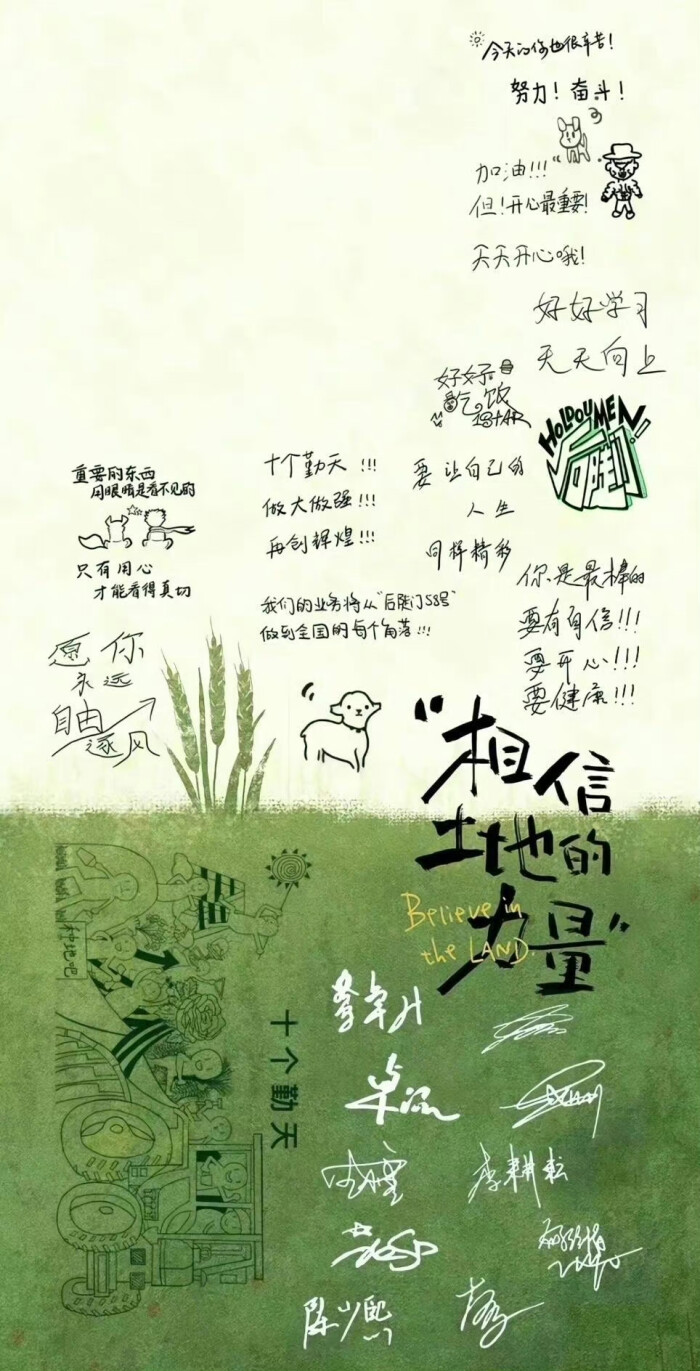 今天的你也很辛苦!
努力!奋斗!
加油!!!
但!开心最重要!
天天开心哦!
好好学习
天天向上
好好
吃饭
1STAR
HOLDOUMEN
后陡门
重要的东西
用眼睛是看不见的
只有用心
才能看得真切
十个勤天!!!
做大做强!!!
再创辉煌!!!
要让自己的
人生
同样精彩
我们的业务将从"后陡门58号"
做到全国的每个角落!!!
你是最棒的
要有自信!!!
要开心!!!
要健康!!!
愿你
永远
自由
逐风
"相信
土地的
力量"
Believe in
the LAND.
种地吧
十个勤天
卓沅
李耕耘
陈少熙